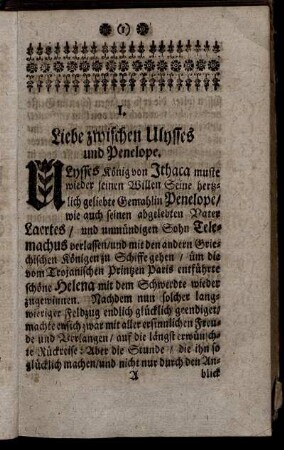 (1)
I.
Liebe zwischen Ulysses
und Penelope.
ULysses König von Ithaca muste
wieder seinen Willen Seine hertz-
lich geliebte Gemahlin Penelope/
wie auch seinen abgelebten Vater
Laertes/ und unmündigen Sohn Tele-
machus verlassen/und mit den andern Grie-
chischen Königen zu Schiffe gehen/ üm die
vom Trojanischen Printzen Paris entführte
schöne Helena mit dem Schwerdte wieder
zugewinnen. Nachdem nun solcher lang-
wieriger Feldzug endlich glücklich geendiget/
machte er sich zwar mit aller ersinnlichen Freu-
de und Verlangen/ auf die längst erwünsch-
te Rückreise: Aber die Stunde/ die ihn so
glücklich machen/und nicht nur durch den An-
A blick